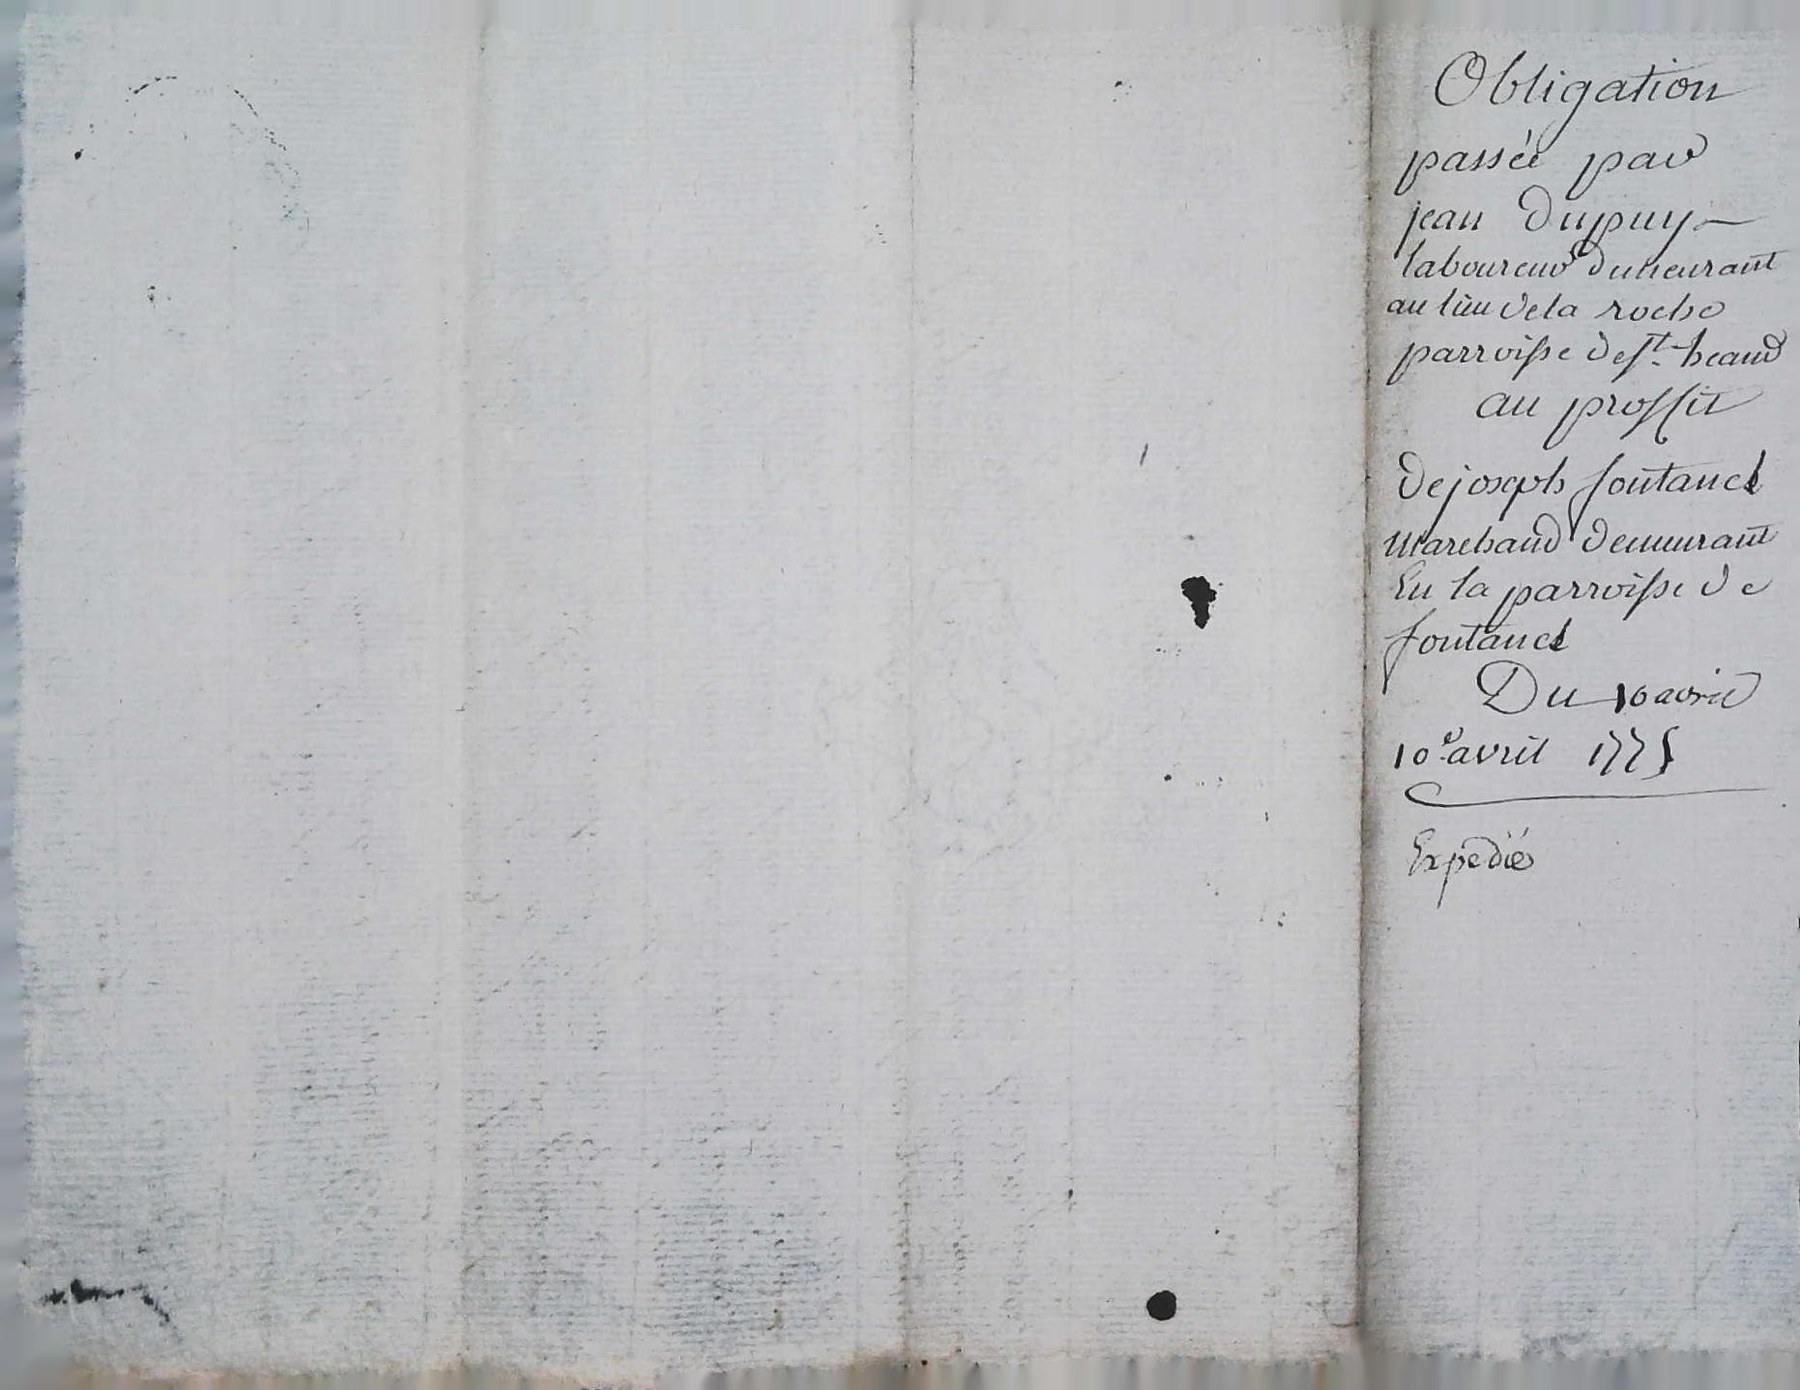 Obligation
passée par
jean Dupuy
laboureur demeurant
au lieu de la roche
parroisse de st. heand
au proffit
de joseph fontanel
Marchand demeurant
En la parroisse de
fontanes
Du 10 avril
10e. avril 1775
Expedié